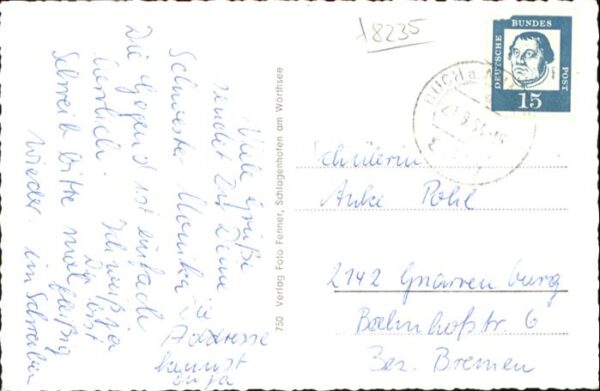 18235
DEUTSCHE
BUNDES
POST
15
BUCH
Viele Grüße
sendet Dir Deine
Schwester Monika
Die Gegend ist einfach
herrlich. Ich weiß ja
Du bist
Schreib bitte mal fleißig
wieder. im Schreiben
Addresse
kannst
du ja
750 Verlag Foto Fenner, Schlagenhofen am Wörthsee
Schülerin
Anke Pohl
2142 Gnarrenburg
Bahnhofstr. 6
Bez. Bremen